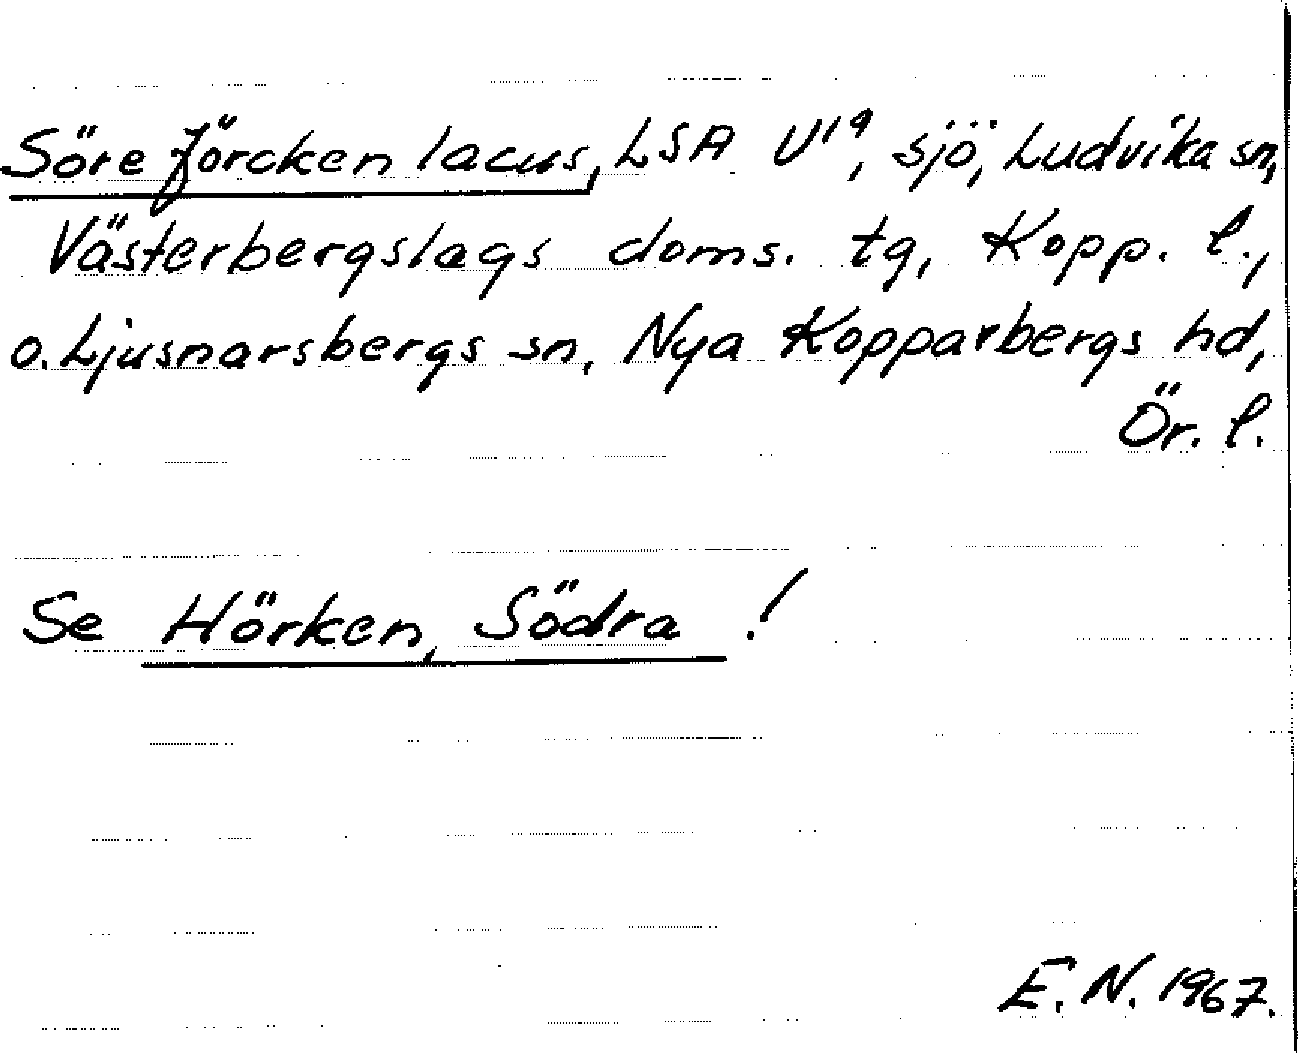 Söre Jörcken lacus, LSA U¹⁹, sjö, Ludvika sn,
Västerbergslags doms. tg, Kopp. l.,
o. Ljusnarsbergs sn, Nya Kopparbergs hd,
Ör. l.
Se Hörken, Södra !
E. N. 1967.